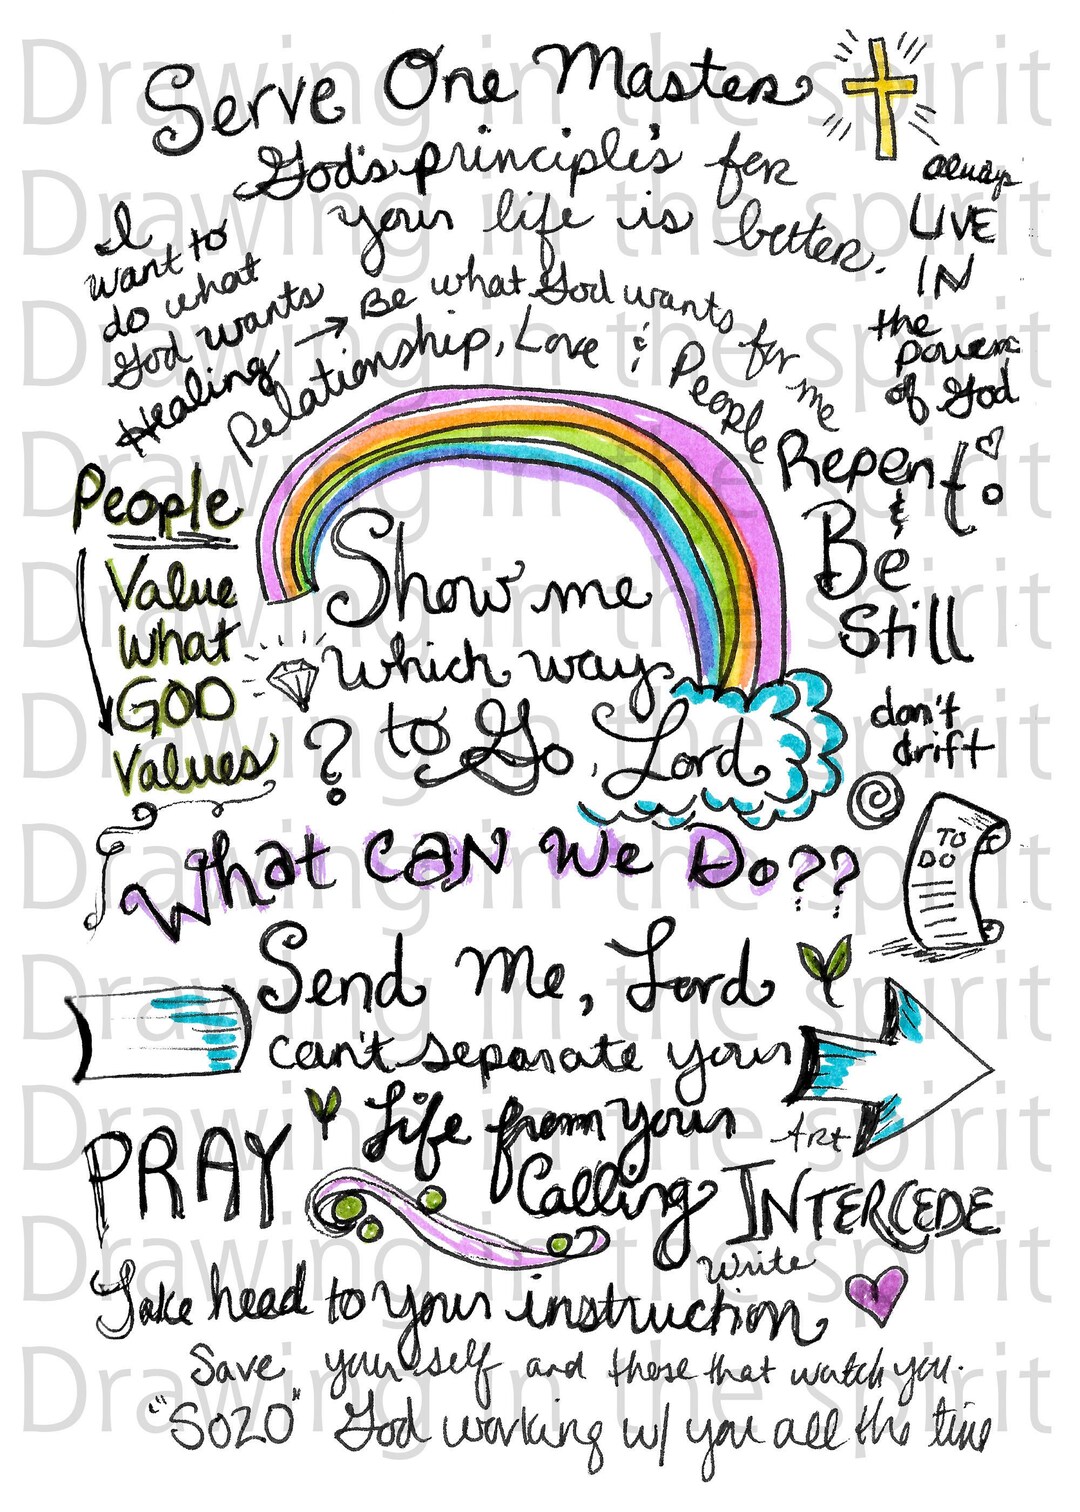 Drawing in the spirit
Serve One Master
God's principle's for
your life is better.
always
LIVE
IN
the
power
of God
I
want to
do what
God wants
Healing → Be what God wants for me
Relationship, Love & People
Repent!
&
Be
Still
People
Value
what
GOD
Values
Show me
which way
to Go, Lord
?
don't
drift
TO
DO
What CAN We Do??
Send Me, Lord
can't separate your
Life from your
Calling
Art
PRAY
INTERCEDE
write
Take head to your instruction
Save yourself and those that watch you.
"SOZO" God working w/ you all the time